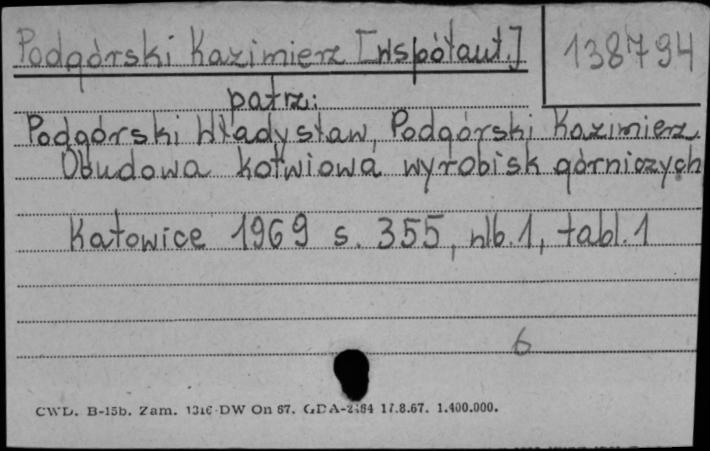 Podgórski Kazimierz [współaut.]
138794
patrz:
Podgórski Władysław, Podgórski Kazimierz
Obudowa kotwiowa wyrobisk górniczych
Katowice 1969 s. 355, nlb. 1, tabl. 1
6
CWD. B-15b. Zam. 1316 DW On 67. GDA-2464 17.8.67. 1.400.000.